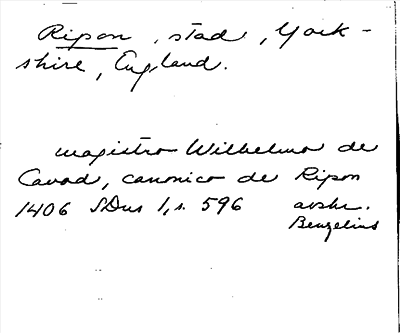 Ripon, stad, York-
shire, England.
magistro Wilhelmo de
Cavod, canonico de Ripon
1406 SDns 1, s. 596 avskr.
Benzelius